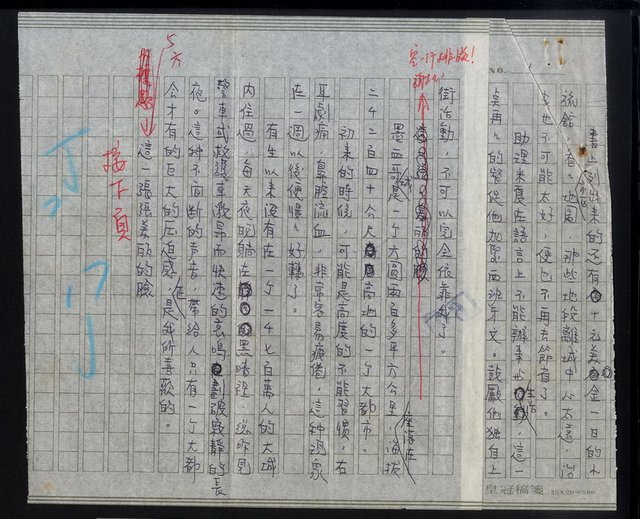 NO.
書上列出來的還有十元美金一日的小
旅館，看地圖，那些地段離城中心太遠，治
安也不可能太好，便也不再去節省了。
助理米夏在語言上不能辦事心生活，這一
點再的督促他加緊西班牙文。鼓勵他獨自上
街活動，不可以完全依靠我了。
空一行排版！
謝謝
墨西哥城是一個方圓兩百多平方公里，座落在海拔
二千二百四十公尺高地的一個大都市。
初來的時候，可能是高度的不能習慣，右
耳劇痛，鼻腔流血，非常容易疲倦，這種現象
在一週以後便慢慢好轉了。
有生以來沒有在一個一千七百萬人的大城
內住過，每天夜晚躺在黑暗裡，總聽見
警車或救護車激昂而快速的哀鳴劃破寂靜的長
夜。這種不間斷的聲音，帶給人只有一個大都
會才有的巨大的壓迫感，是我所喜歡的。
5方
這一張張美麗的臉
接下頁
皇冠稿箋 25X20=500